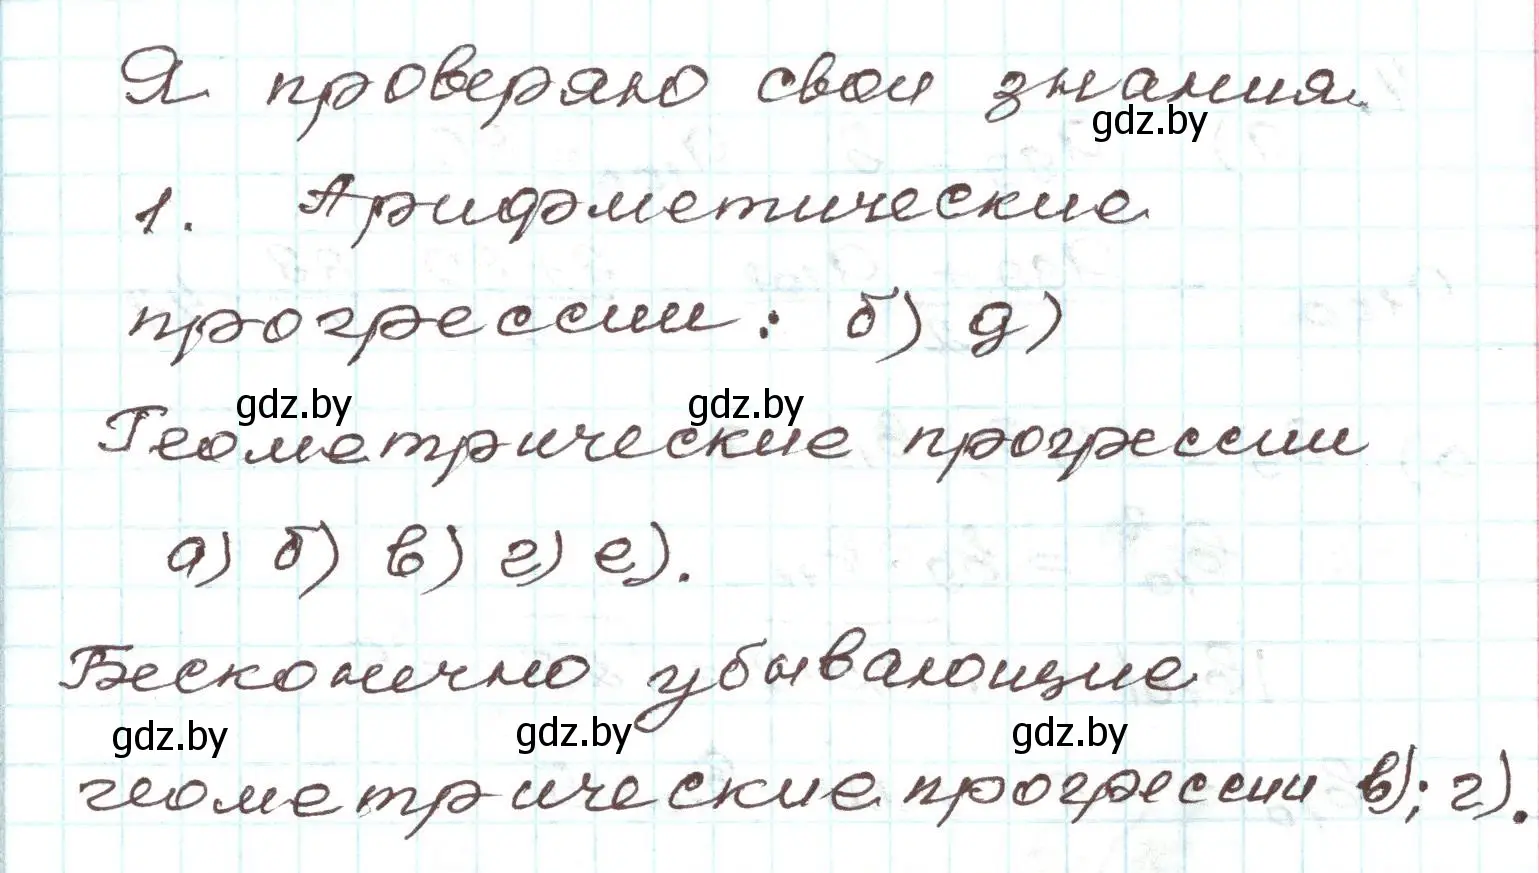 Я проверяю свои знания.
gdz.by
1. Арифметические
прогрессии: б) д)
gdz.by gdz.by
Геометрические прогрессии
а) б) в) г) е).
Бесконечно убывающие
gdz.by gdz.by gdz.by
геометрические прогрессии в); г).